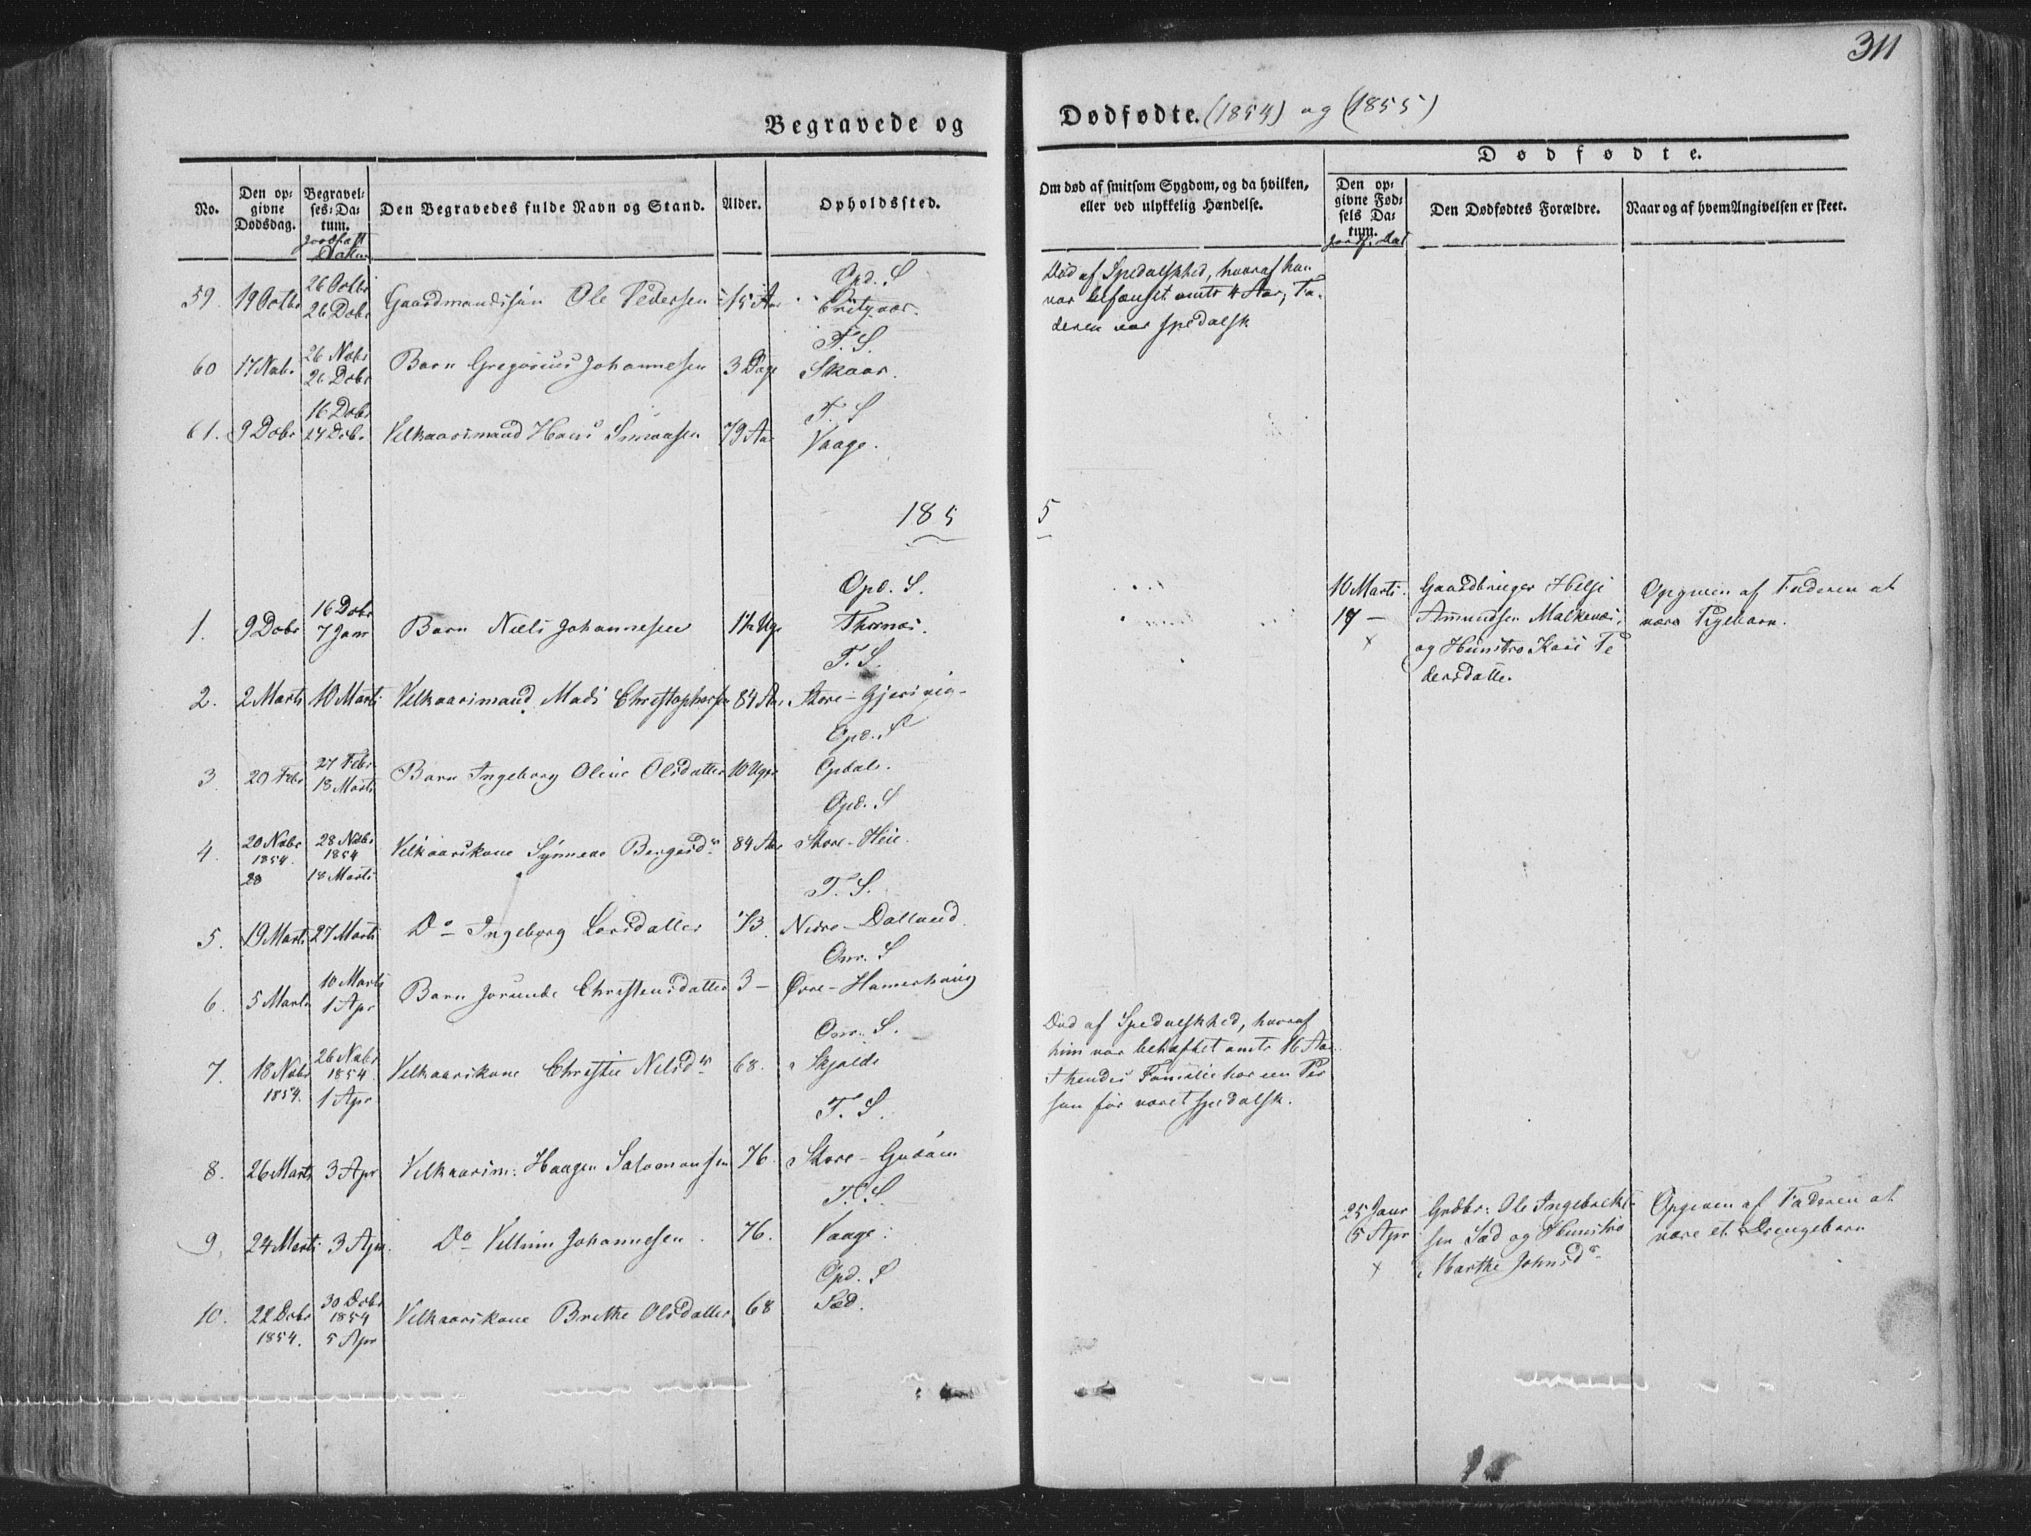 311
Begravede og Dødfødte. (1854) og (1855)
No.
Den opgivne Dødsdag.
Begravelses-Datum.
Den Begravedes fulde Navn og Stand.
Alder.
Opholdssted.
Om død af smitsom Sygdom, og da hvilken, eller ved ulykkelig Hændelse.
Dødfødte.
Den opgivne Fødsels Datum.
Den Dødfødtes Forældre.
Naar og af hvem Angivelsen er skeet.
59. 19 Octbr 26 Octbr 26 Dcbr Gaardmandssøn Ole Pedersen 15 Aar Opd. S
Død af Spedalskhed, hvoraf han
var befænget omtr 4 Aar; Fa-
deren var spedalsk
60 17 Nobr 26 Nobr 26 Dcbr Barn Gregorius Johannesen 3 Dage F. S. Skaar.
61. 9 Dcbr 16 Dcbr 27 Dcbr Velkaarsmand Hans Simonsen 79 Aar F. S Vaage.
1855
1. 9 Dcbr 16 Dcbr 7 Janr Barn Niels Johannesen Opd. S.
10 Marts 17 — x
Gaardbruger Helje
Amundsen
og Hustro Kari Pe
dersdatter.
Opgiven af Faderen at
være Pigebarn.
2. 2 Marts 10 Marts Velkaarsmand Mads Christophersen 84 Aar F. S. Store-Gjersvig
3. 20 Febr 27 Febr 18 Marts Barn Ingeborg Oline Olsdatter 10 Uger Opd. S Opdal.
4. 20 Nobr 1854. 28 28 Nobr 1854 18 Marts Velkaarskone Synneve Bergesdr 84 Aar Opd. S Store-Heie.
5. 19 Marts 27 Marts Do Ingeborg Larsdatter 73. F. S. Nedre-Dalland
6. 5 Marts 10 Marts 1 Apr Barn Jorunde Christensdatter 3 — Onr. S Øvre-Hamerhaug
7. 18 Nobr 1854. 26 Nobr 1854. 1 Apr Velkaarskone Christie Nelsdr 68. Onr. S. Skjolde
Død af Spedalskhed, hvoraf
hun var behæftet omtr 16 Aar.
I hendes Familie har een Per
son før været spedalsk.
8. 26 Marts 3 Apr Velkaarsm: Haagen Salomonsen 76. F. S. Store-Godøen
9. 24 Marts 3 Apr. Do Villum Johannesen. 76. F. S Vaage.
25 Janr 5 Apr x
Grdbr: Ole Ingebrict-
sen Sæd og Hustro
Marthe Johnsdr
Opgiven af Faderen at
være et Drengebarn
10. 22 Dcbr 1854. 30 Dcbr 1854 5 Apr Velkaarskone Brithe Olsdatter 68 Opd. S Sæd.